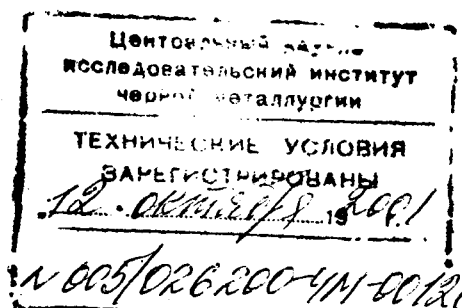 Центральный научно
исследовательский институт
черной металлургии
ТЕХНИЧЕСКИЕ УСЛОВИЯ
ЗАРЕГИСТРИРОВАНЫ
12. октября 19 2001
N 005/026200-ЧМ-0012